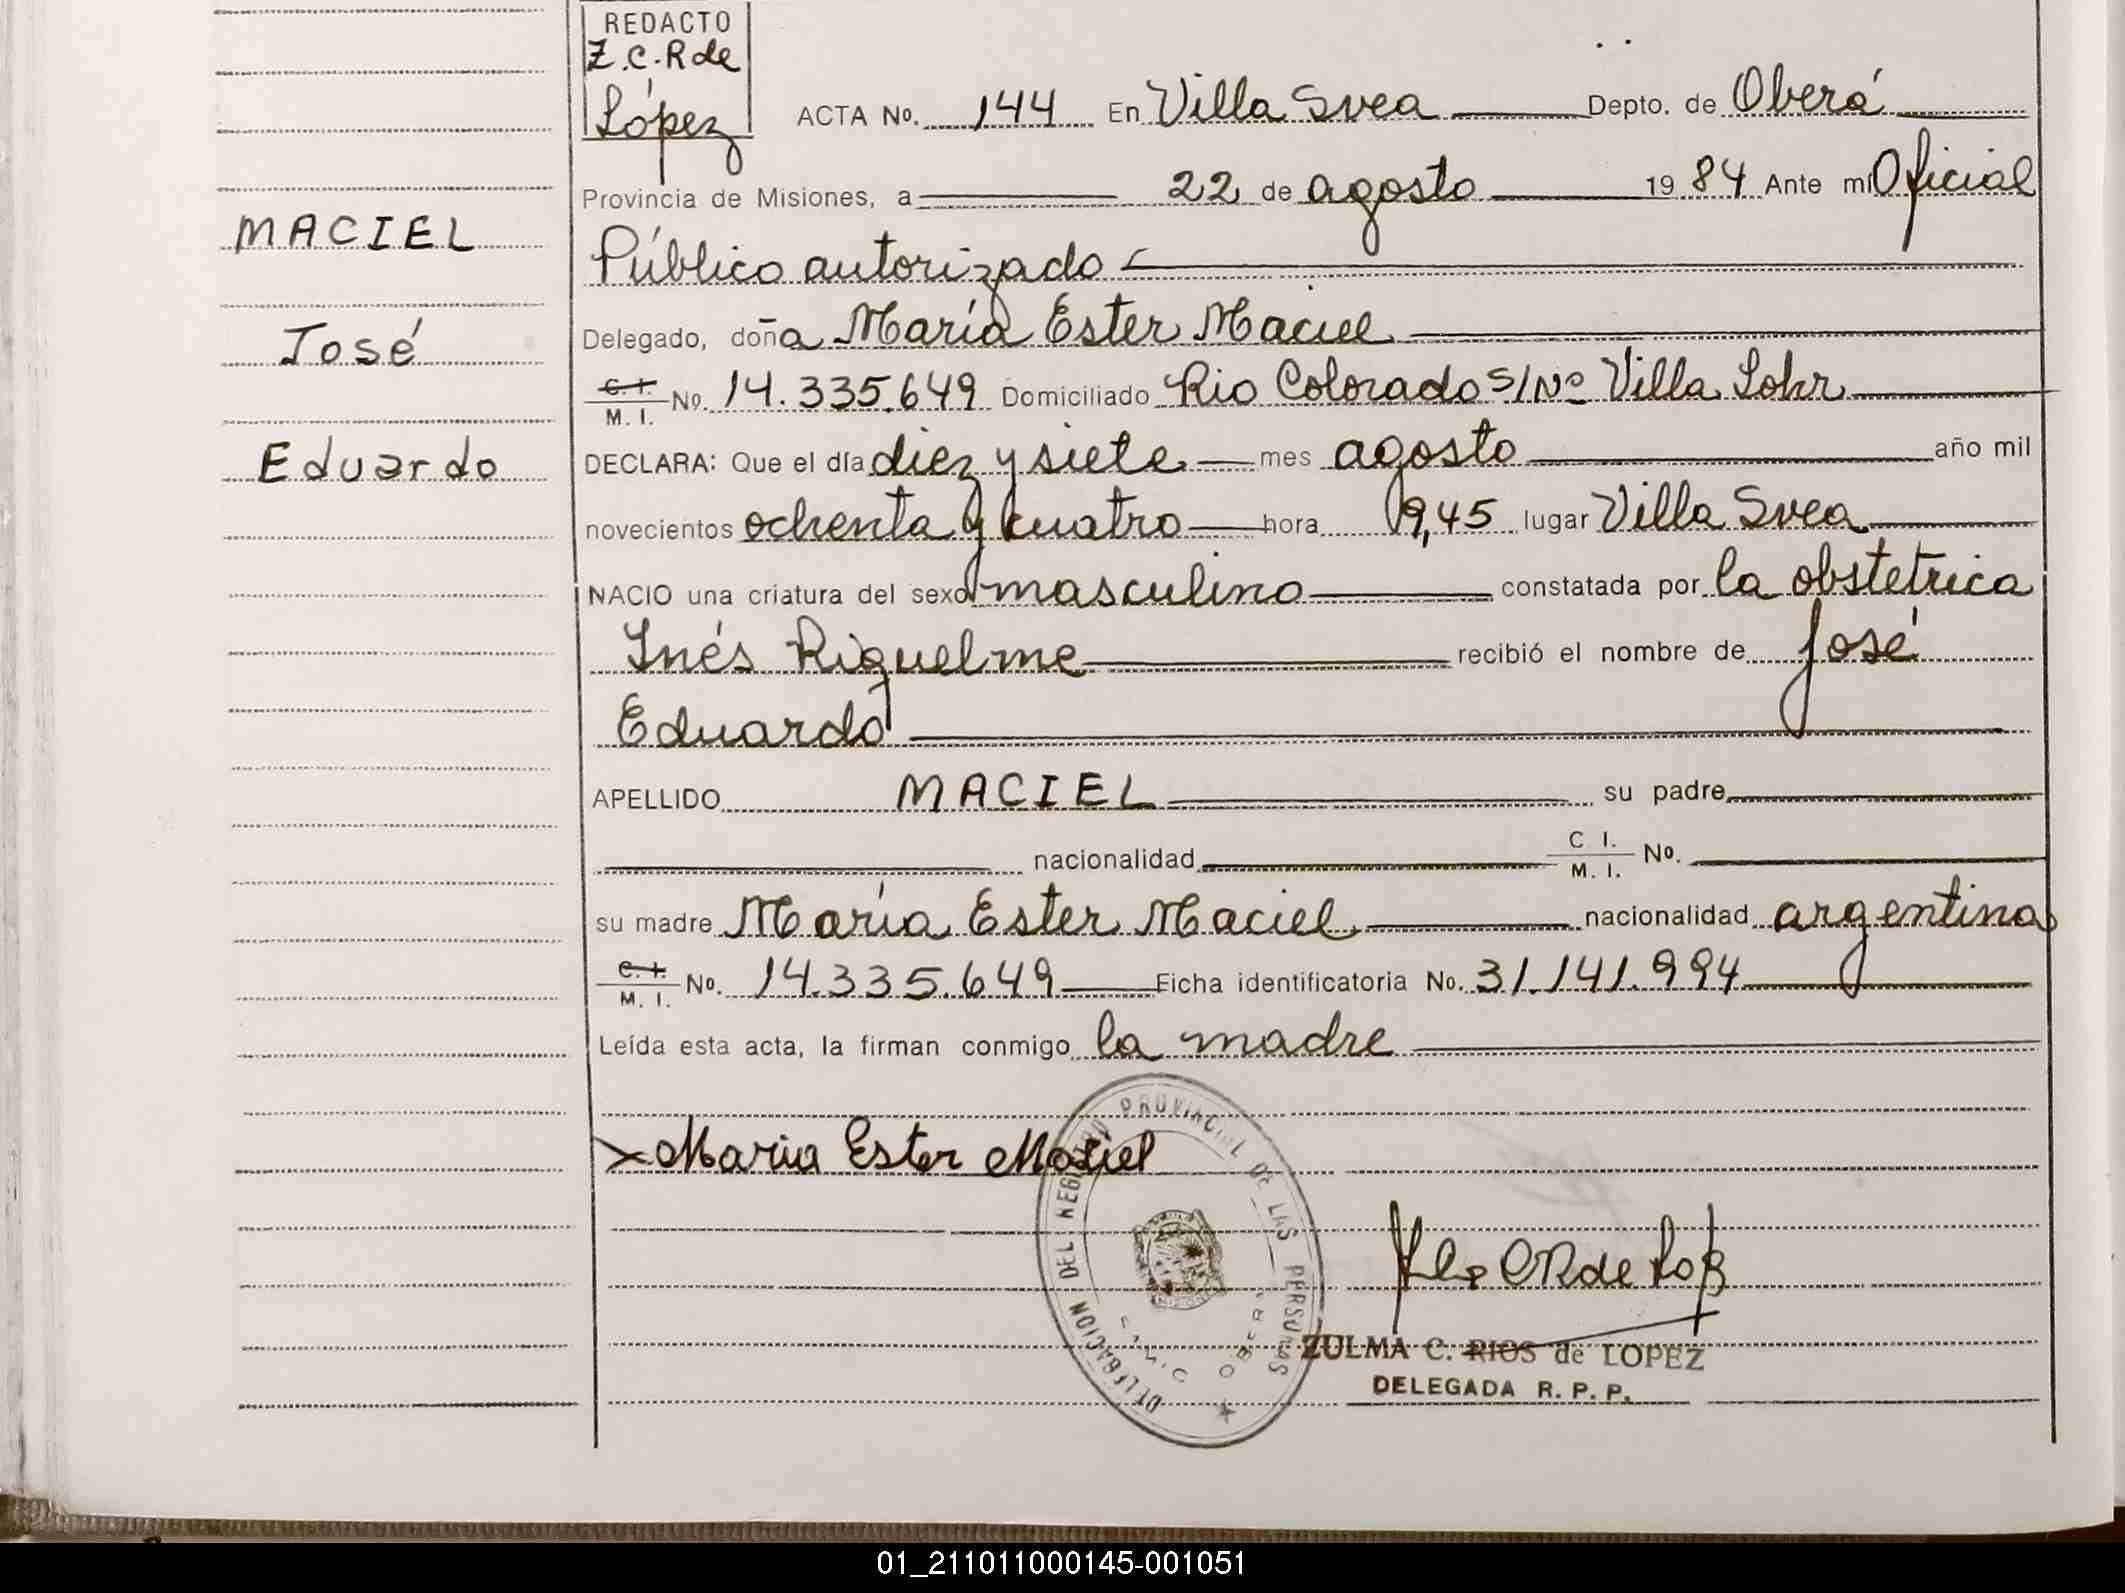 REDACTO
Z.C.R de
López
ACTA No. 144 En Villa Svea Depto. de Oberá
Provincia de Misiones, a 22 de agosto 1984 Ante mí Oficial
Público autorizado
Delegado, doña María Ester Maciel
C. I. M. I. No. 14.335.649 Domiciliado Rio Colorado S/Nº Villa Lohr
DECLARA: Que el día diez y siete mes agosto año mil
novecientos ochenta y cuatro hora 9,45 lugar Villa Svea
NACIO una criatura del sexo masculino constatada por la obstetrica
Inés Riquelme recibió el nombre de José
Eduardo
APELLIDO MACIEL su padre
nacionalidad C I. M. I. No.
su madre María Ester Maciel nacionalidad argentina
C. I. M. I. No. 14.335.649 Ficha identificatoria No. 31.141.994
Leída esta acta, la firman conmigo la madre
MACIEL
José
Eduardo
x Maria Ester Maciel
DELEGACION DEL REGISTRO PROVINCIAL DE LAS PERSONAS
OBERA
ZULMA C. RIOS de LOPEZ
DELEGADA R. P. P.
01_211011000145-001051